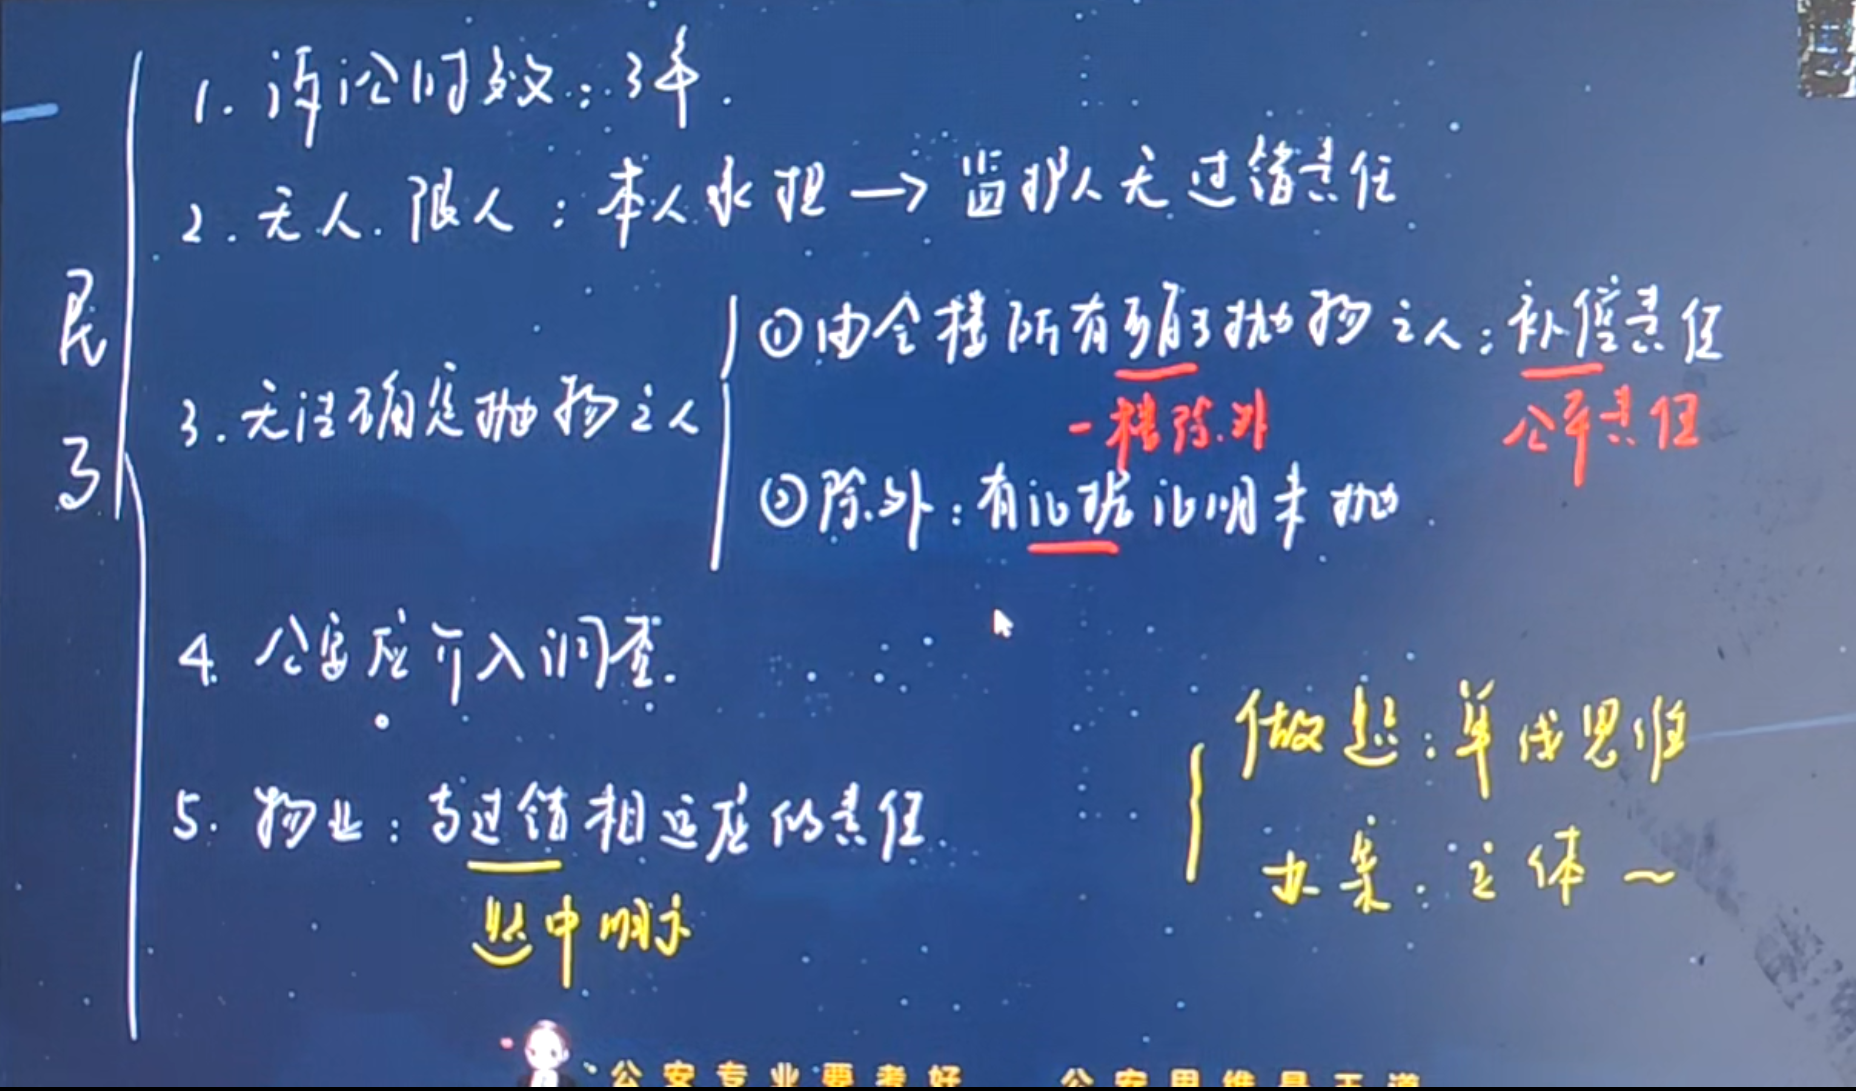 民
了
1. 诉讼时效:3年.
2. 无人.限人:本人承担→监护人无过错责任
3. 无法确定抛物之人
①由全楼所有可能抛物之人:补偿责任
一楼除外
公平责任
②除外:有证据证明未抛.
4. 公安应介入调查.
5. 物业:与过错相适应的责任
题中明示
做题:单线思维
办案:立体~
公安专业要考好 公安思维是王道